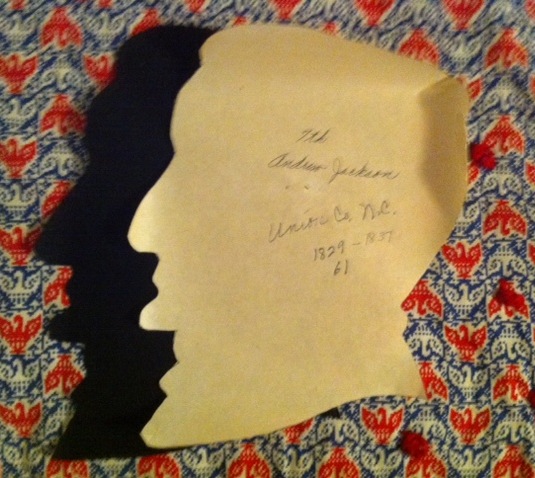 7th
Andrew Jackson
Union Co, N.C.
1829 - 1837
61